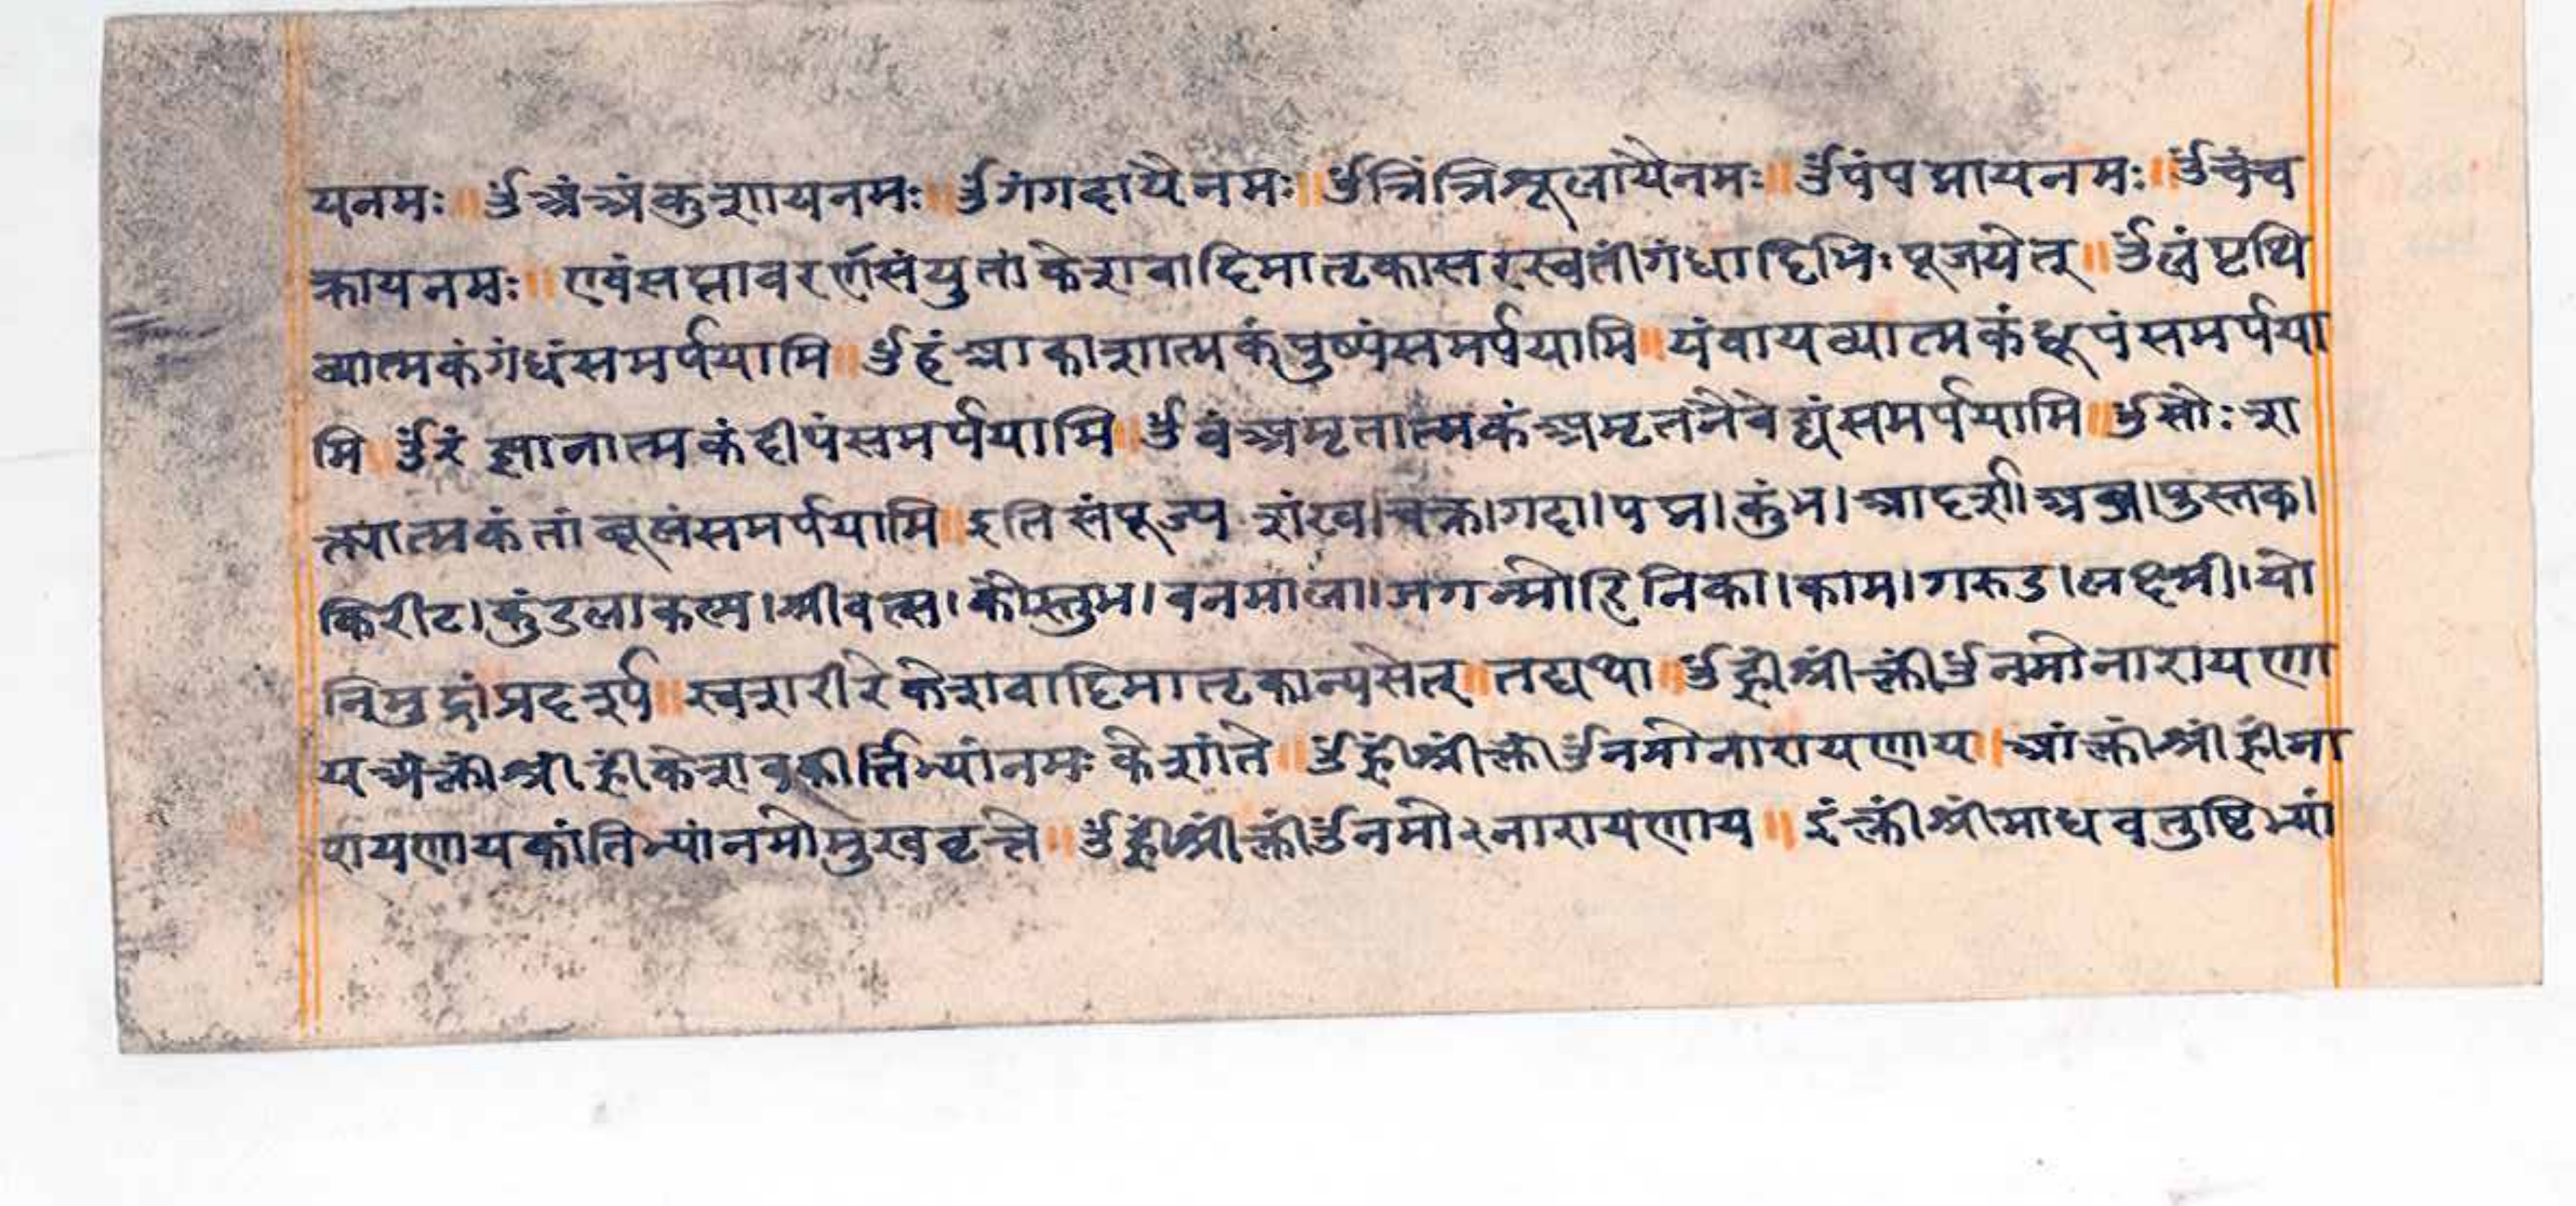 यनमः ॥ ॐअंअंकुशायनमः ॥ ॐगंगदायैनमः ॥ ॐत्रिंत्रिशूलायैनमः ॥ ॐपंपद्मायनमः ॥ ॐचंच
क्रायनमः ॥ एवंसप्तावरर्णसंयुतांकेशवादिमातृकासरस्वतींगंधादिभिः पूजयेत् ॥ ॐलंपृथि
व्यात्मकंगंधंसमर्पयामि ॥ ॐहंआकाशात्मकंपुष्पंसमर्पयामि ॥ यंवायव्यात्मकंधूपंसमर्पया
मि ॥ ॐरं ज्ञानात्मकंदीपंसमर्पयामि ॥ ॐवंअमृतात्मकंअमृतनैवेद्यंसमर्पयामि ॥ ॐसौः श
क्त्यात्मकंतांबूलंसमर्पयामि ॥ इतिसंपूज्य शंख।चक्र।गदा।पद्म।कुंभ।आदर्श।अब्ज।पुस्तक।
किरीट।कुंडल।कल्प।श्रीवत्स।कौस्तुभ।वनमाला।जगन्मोहिनिका।काम।गरुड।लक्ष्मी।यो
निमुद्रांप्रदर्श्य ॥ स्वशरीरेकेशवादिमातृकान्यसेत् ॥ तद्यथा ॥ ॐह्रींश्रींक्लींॐनमोनारायणा
यअंक्लींश्रींह्रींकेशवकीर्त्तिभ्यांनमः केशांते ॥ ॐह्रींश्रींक्लींॐनमोनारायणाय ॥ आंक्लींश्रींह्रींना
रायणायकांतिभ्यांनमोमुखवृत्ते ॥ ॐह्रींश्रींक्लींॐनमो२नारायणाय ॥ इंक्लींश्रींमाधवतुष्टिभ्यां